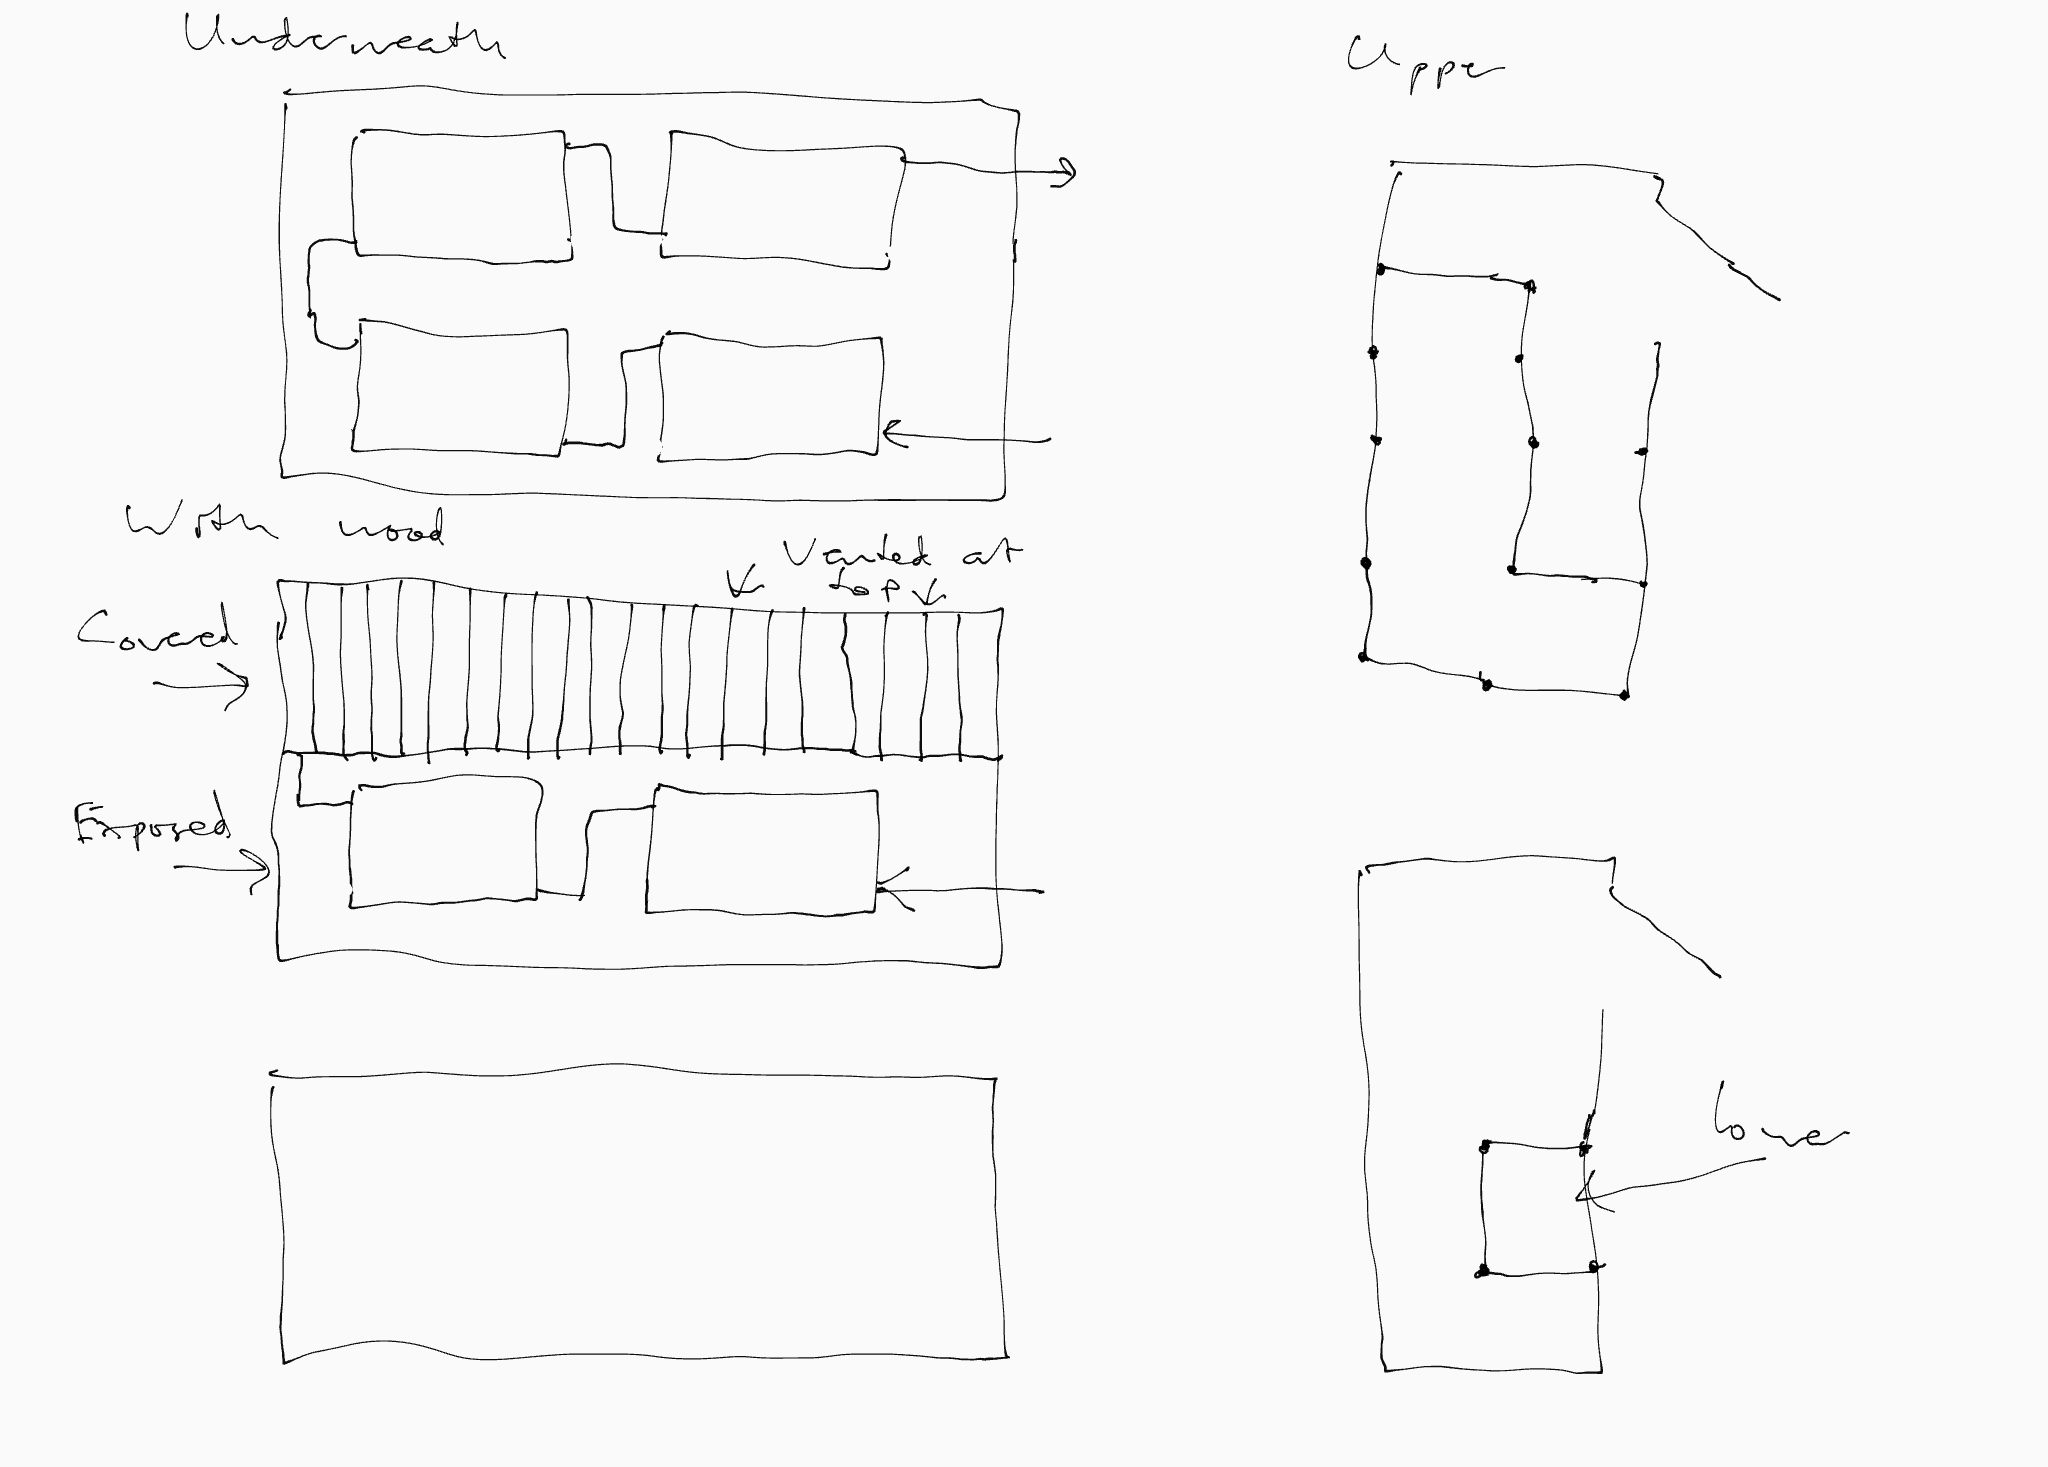 Underneath
Upper
With wood
Vented at
top
Covered
Exposed
lower